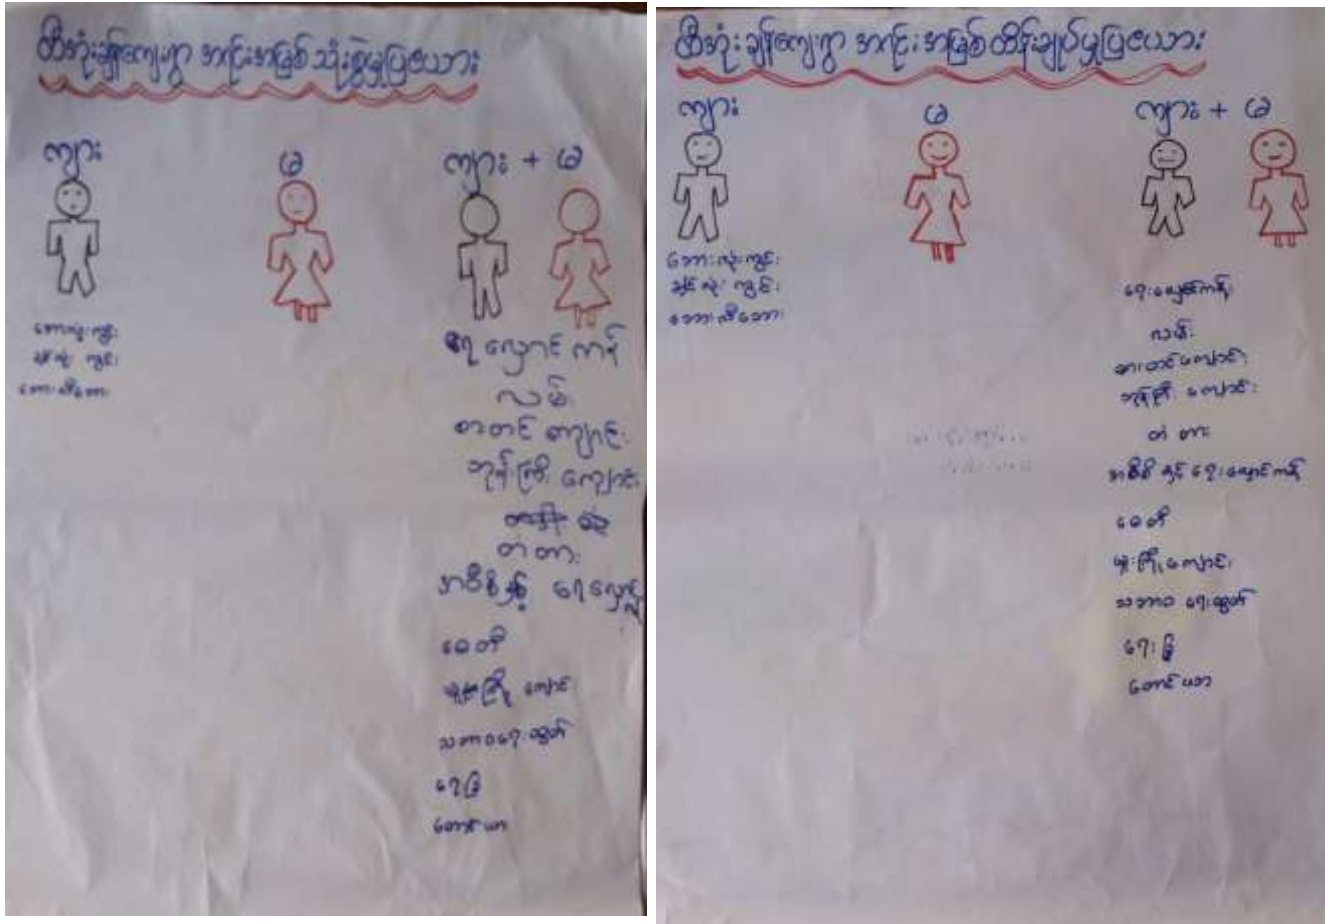 ထီအုံးချိန်ကျေးရွာ အရင်းအမြစ် သုံးစွဲမှုပြဇယား
ကျား
မ
ကျား + မ
ဘောလုံးကွင်း
ချင်းလုံး ကွင်း
ရေလှောင်ကန်
လမ်း
စာသင်ကျောင်း
ဘုန်းကြီး ကျောင်း
တံတား
အဝီစိနှင့် ရေလှောင်
စေတီ
မူကြို ကျောင်း
သဘာဝရေ ထွက်
ရေမြို
တောင်ယာ
ထီအုံးချိန်ကျေးရွာ အရင်းအမြစ် ထိန်းချုပ်မှုပြဇယား
ကျား
မ
ကျား + မ
ဘောလုံးကွင်း
ချင်းလုံး ကွင်း
ရေလှောင်ကန်
လမ်း
စာသင်ကျောင်း
ဘုန်းကြီး ကျောင်း
တံ တား
အဝီစိ နှင့် ရေလှောင်ကန်
စေတီ
မူကြိုကျောင်း
သဘာဝ ရေထွက်
တောင်ယာ